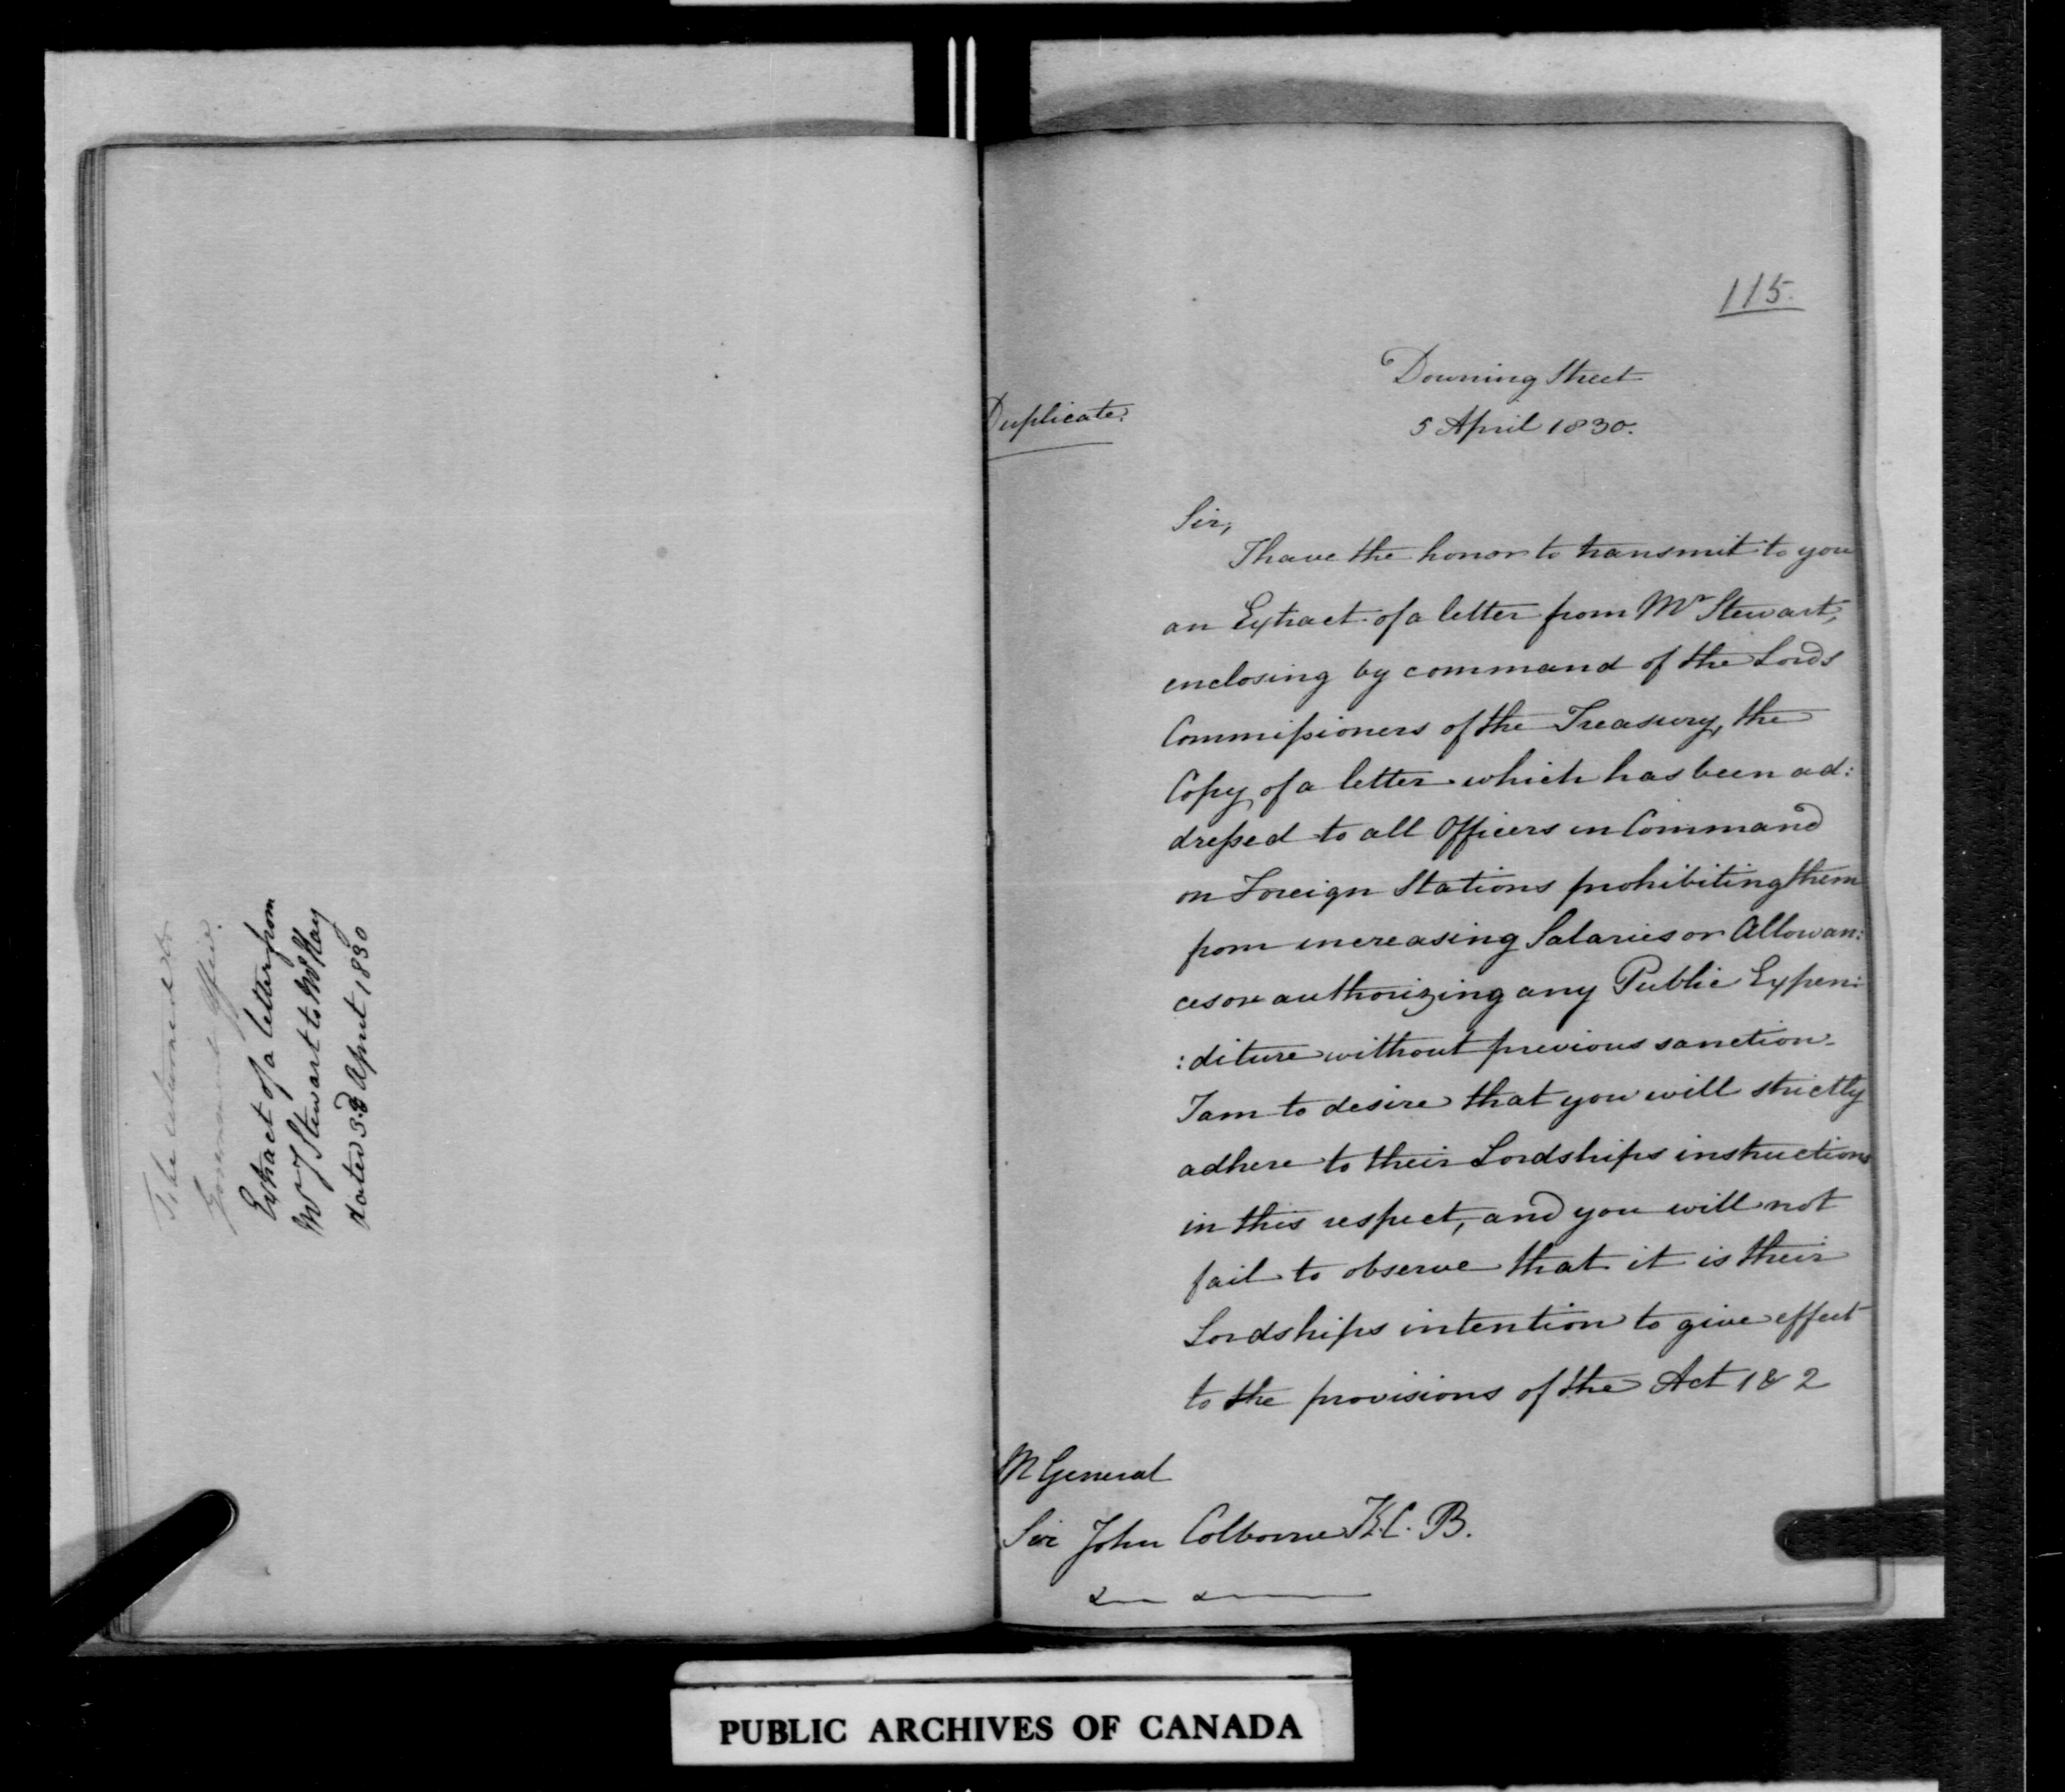 To be returned to
Government Office.
Extract of a letter from
Mr J Stewart to Mr Hay
dated 3d April 1830
115.
Duplicate.
Downing Street
5 April 1830.
Sir,
I have the honor to transmit to you
an Extract of a letter from Mr Stewart,
enclosing by command of the Lords
Commissioners of the Treasury, the
Copy of a letter which has been ad:
dressed to all Officers in Command
on Foreign Stations prohibiting them
from increasing Salaries or Allowan:
ces or authorizing any Public Expen:
:diture without previous sanction.
I am to desire that you will strictly
adhere to their Lordships instructions
in this respect, and you will not
fail to observe that it is their
Lordships intention to give effect
to the provisions of the Act 1 & 2
M General
Sir John Colborne K.C.B.
PUBLIC ARCHIVES OF CANADA